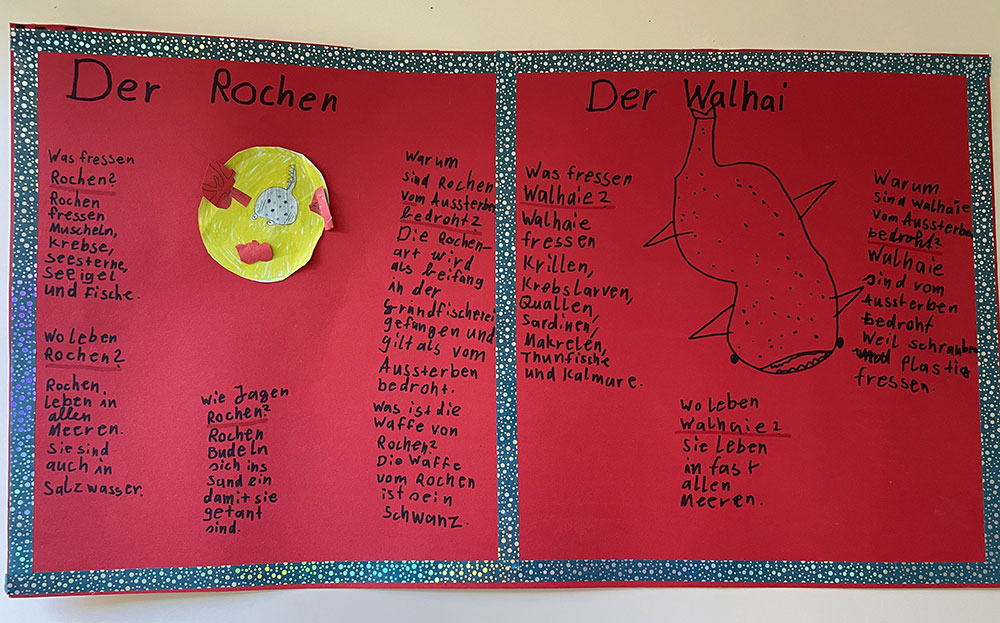 Der Rochen
Was fressen
Rochen?
Rochen
fressen
Muscheln,
Krebse,
Seesterne,
Seeigel
und Fische.
Wo leben
Rochen?
Rochen
leben in
allen
Meeren.
Sie sind
auch in
Salzwasser.
Wie Jagen
Rochen?
Rochen
Budeln
sich ins
Sand ein
damit sie
getant
sind.
Warum
sind Rochen
vom Aussterben
bedroht?
Die Rochen-
art wird
als beifang
in der
grandfischerei
gefangen und
gilt als vom
Aussterben
bedroht.
Was ist die
Waffe von
Rochen?
Die Waffe
vom Rochen
ist sein
Schwanz.
Der Walhai
Was fressen
Walhaie?
Walhaie
fressen
Krillen,
Krebslarven,
Quallen,
Sardinen,
Makrelen,
Thunfische
und Kalmare.
Wo leben
Walhaie?
Sie leben
in fast
allen
Meeren.
Warum
sind Walhaie
vom Aussterben
bedroht?
Walhaie
sind vom
Aussterben
bedroht
Weil schrauben
und Plastig
fressen.